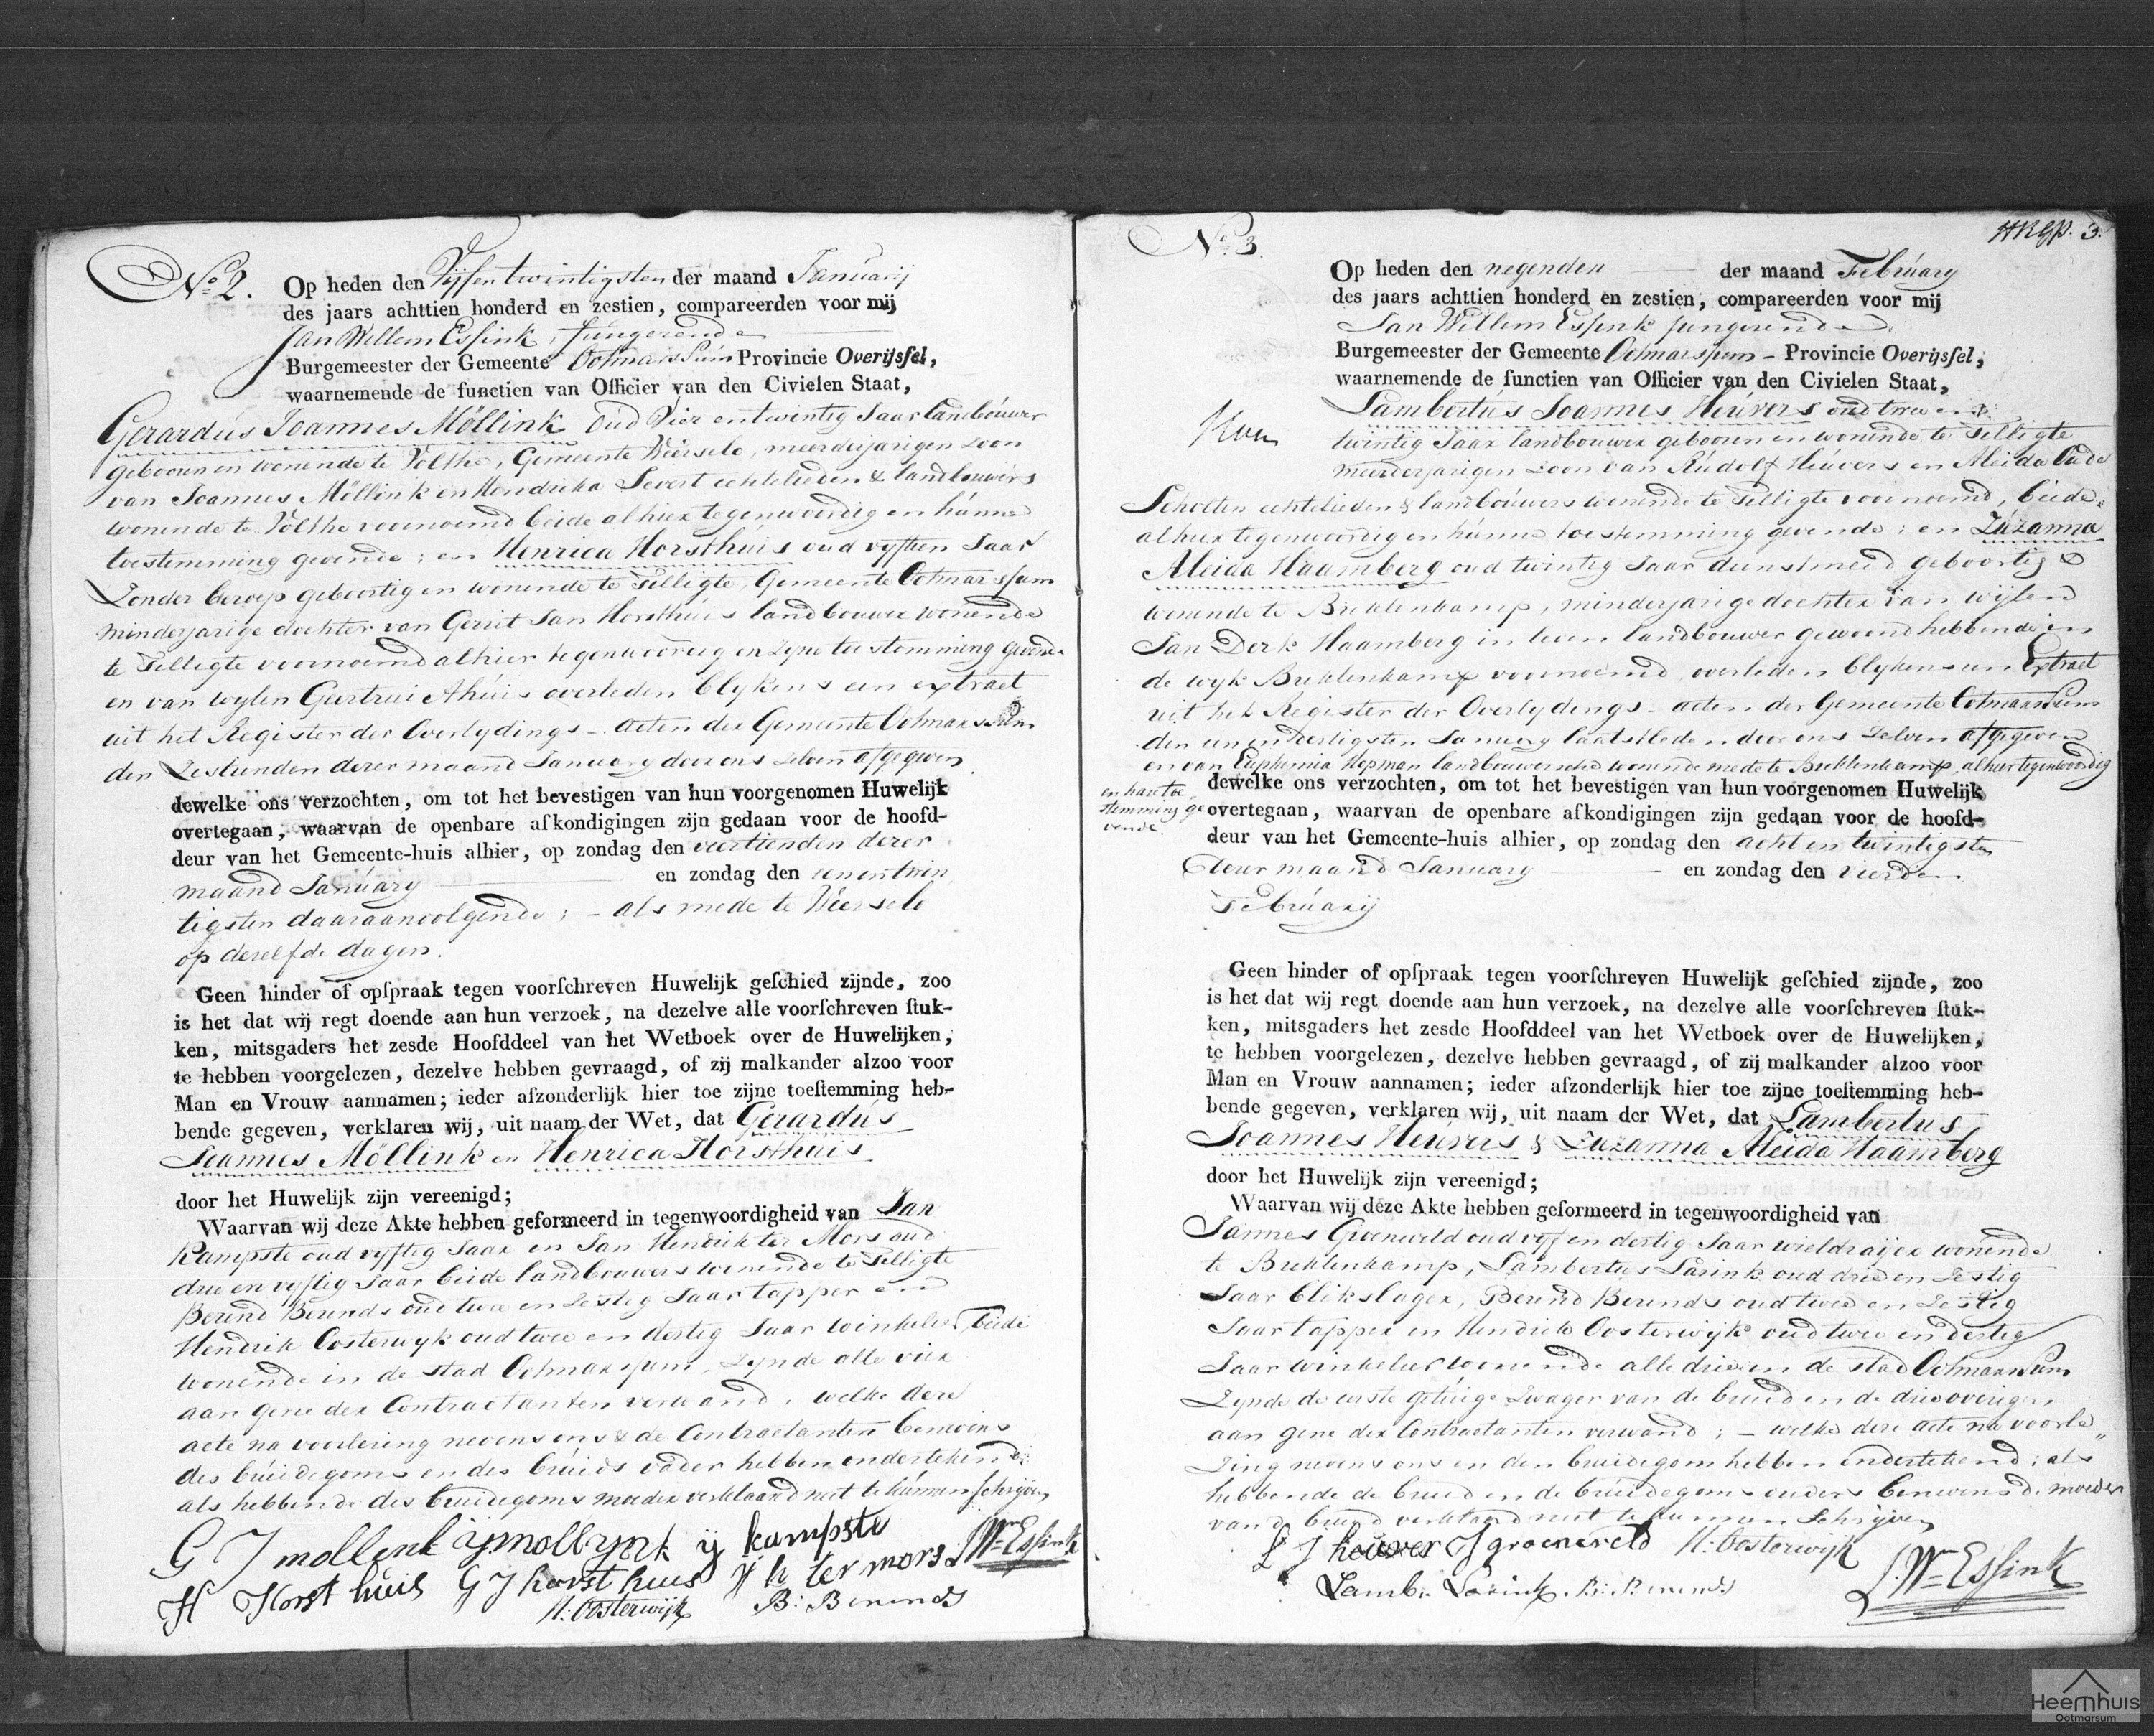 No. 2.
Op heden den Vijfentwintigsten der maand Januarij
des jaars achttien honderd en zestien, compareerden voor mij
Jan Willem Essink, fungerende
Burgemeester der Gemeente Ootmarssum Provincie Overijsſel,
waarnemende de functien van Officier van den Civielen Staat,
Gerardus Joannes Möllink oud Vier en twintig Jaar landbouwer
gebooren en wonende te Volthe, Gemeente Weerselo, meerderjarigen zoon
van Joannes Möllink en Hendrika Severt echtelieden & landbouwers
wonende te Volthe voornoemd beide alhier tegenwoordig en hunne
toestemming gevende; en Henrica Horsthuis oud vyftien Jaar
Zonder beroep geboortig en wonende te Tilligte, Gemeente Ootmarssum
minderjarige dochter van Gerrit Jan Horsthuis landbouwer wonende
te Tilligte voornoemd alhier tegenwoordig en zyne toestemming gevende
en van wylen Geertrui Ahuis overleden blykens een extract
uit het Register der Overlydings-acten der Gemeente Ootmarssum
den Zestienden dezer maand January door ons zelven afgegeven
dewelke ons verzochten, om tot het bevestigen van hun voorgenomen Huwelijk
overtegaan, waarvan de openbare afkondigingen zijn gedaan voor de hoofd-
deur van het Gemeente-huis alhier, op zondag den veertienden dezer
maand January en zondag den eenentwin
tigsten daaraanvolgende; - als mede te Weerselo
op dezelfde dagen.
Geen hinder of opſpraak tegen voorſchreven Huwelijk geſchied zijnde, zoo
is het dat wij regt doende aan hun verzoek, na dezelve alle voorſchreven ſtuk-
ken, mitsgaders het zesde Hoofddeel van het Wetboek over de Huwelijken,
te hebben voorgelezen, dezelve hebben gevraagd, of zij malkander alzoo voor
Man en Vrouw aannamen; ieder afzonderlijk hier toe zijne toeſtemming heb-
bende gegeven, verklaren wij, uit naam der Wet, dat Gerardus
Joannes Möllink en Henrica Horsthuis
door het Huwelijk zijn vereenigd;
Waarvan wij deze Akte hebben geformeerd in tegenwoordigheid van Jan
Kampste oud vyftig Jaar en Jan Hendrik ter Mors oud
drie en vyftig Jaar beide landbouwers wonende te Tilligte
Berend Berends oud twee en Zestig Jaar tapper en
Hendrik Oosterwyk oud twee en dertig Jaar winkelier, beide
wonende in de stad Ootmarssum, zynde alle vier
aan gene der Contractanten verwand, welke deze
acte na voorlezing nevens ons & de Contractanten benevens
des bruidegoms en des bruids vader hebben ondertekend
als hebbende des bruidegoms moeder verklaard niet te kunnen schryven
G J mollenk ijmollynk ij kampste
H Horst huis G J horst huis J h ter mors J. Wm Essink
H: Oosterwijk B: Berends
HRGp. 3.
No. 3.
Op heden den negenden der maand February
des jaars achttien honderd en zestien, compareerden voor mij
Jan Willem Essink fungerende
Burgemeester der Gemeente Ootmarssum - Provincie Overijsſel,
waarnemende de functien van Officier van den Civielen Staat,
Lambertus Joannes Heuvers oud twee en
twintig Jaar landbouwer gebooren en wonende te Tilligte
meerderjarigen zoon van Rudolf Heuvers en Aleida Oude
Scholten echtelieden & landbouwers wonende te Tilligte voornoemd, beide
alhier tegenwoordig en hunne toestemming gevende; en Zuzanna
Aleida Haamberg oud twintig Jaar dienstmeid geboortig &
wonende te Breklenkamp, minderjarige dochter van wijlen
Jan Derk Haamberg in leven landbouwer gewoond hebbende in
de wyk Breklenkamp voornoemd overleden blykens een Extract
uit het Register der Overlydings-acten der Gemeente Ootmarssum
den een en dertigsten January laatstleden door ons zelven afgegeven
en van Euphemia Hopman landbouwersche wonende mede te Breklenkamp, alhier tegenwoordig
en hare toe
stemming ge
vende.
dewelke ons verzochten, om tot het bevestigen van hun voorgenomen Huwelijk
overtegaan, waarvan de openbare afkondigingen zijn gedaan voor de hoofd-
deur van het Gemeente-huis alhier, op zondag den acht en twintigsten
dezer maand January en zondag den vierden
Februarij
Geen hinder of opſpraak tegen voorſchreven Huwelijk geſchied zijnde, zoo
is het dat wij regt doende aan hun verzoek, na dezelve alle voorſchreven ſtuk-
ken, mitsgaders het zesde Hoofddeel van het Wetboek over de Huwelijken,
te hebben voorgelezen, dezelve hebben gevraagd, of zij malkander alzoo voor
Man en Vrouw aannamen; ieder afzonderlijk hier toe zijne toeſtemming heb-
bende gegeven, verklaren wij, uit naam der Wet, dat Lambertus
Joannes Heuvers & Zuzanna Aleida Haamberg
door het Huwelijk zijn vereenigd;
Waarvan wij deze Akte hebben geformeerd in tegenwoordigheid van
Jannes Groeneveld oud vyf en dertig Jaar wieldraijer wonende
te Breklenkamp, Lambertus Lasink oud drie en Zestig
Jaar blikslager, Berend Berends oud twee en Zestig
Jaar tapper en Hendrik Oosterwijk oud twee en dertig
Jaar winkelier wonende alle drie in de stad Ootmarssum
Zynde de eerste getuige Zwager van de bruid en de drie overigen
aan gene der Contractanten verwand; - welke deze acte na voorle
zing nevens ons en den bruidegom hebben ondertekend; als
hebbende de bruid en de bruidegoms ouders benevens de moeder
van de bruid verklaard niet te kunnen Schryven
L J heuver J groeneveld H: Oosterwijk
Lamb. Lasink. B: Berends J. Wm Essink
Heemhuis
Ootmarsum